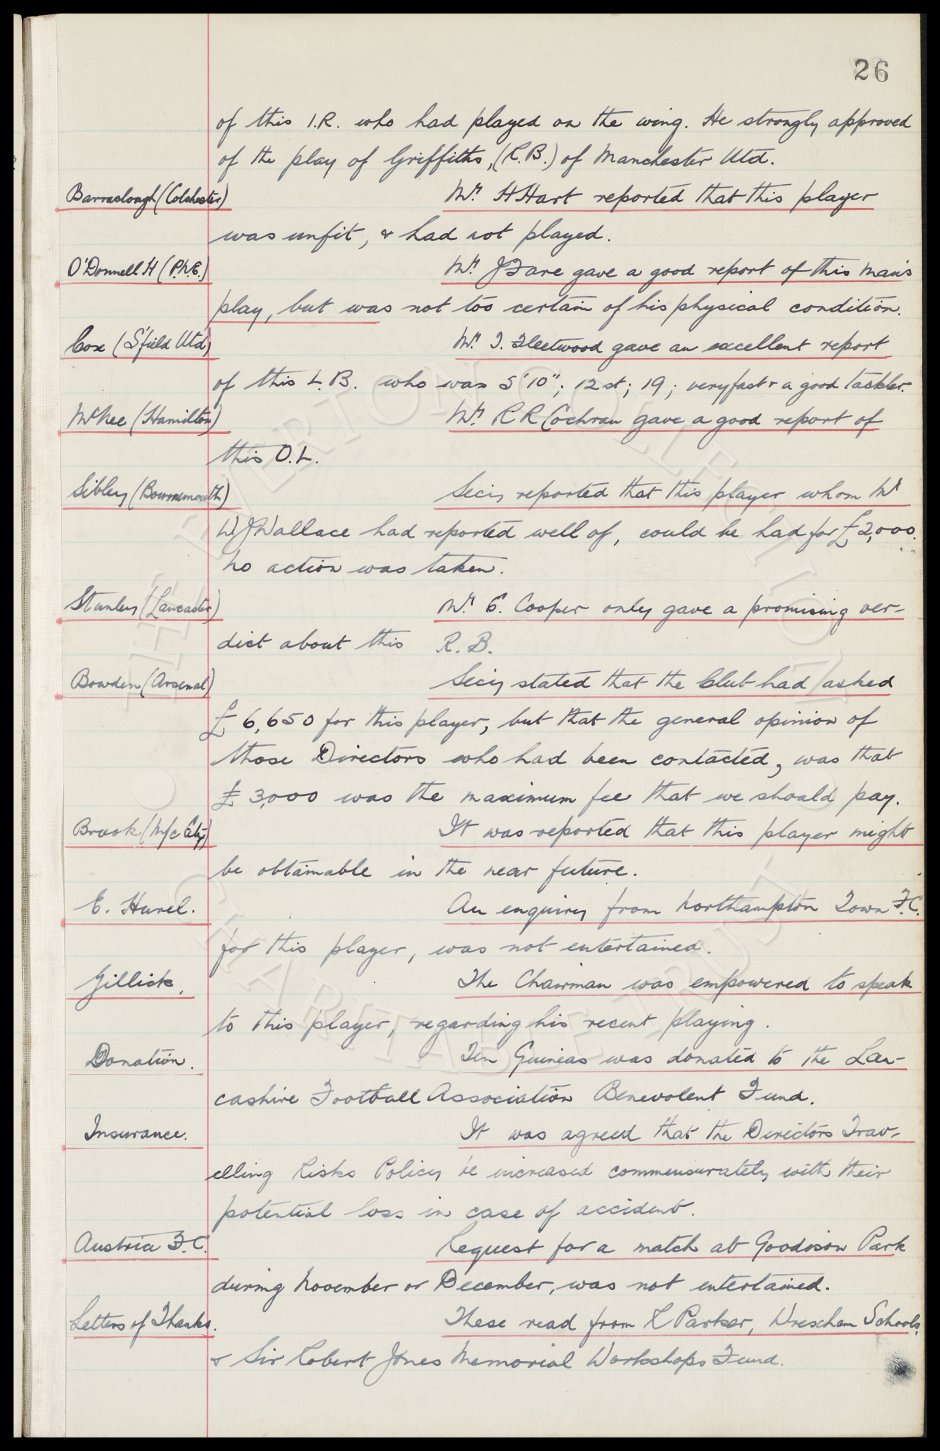 26
of this I.R. who had played on the wing. He strongly approved
of the play of Griffiths, (R.B.) of Manchester Utd.
Barraclough (Colchester) Mr. H Hart reported that this player
was unfit, & had not played.
O'Donnell H (P.N.E.) Mr. J Fare gave a good report of this man's
play, but was not too certain of his physical condition.
Cox (S'field Utd) Mr. T. Fleetwood gave an excellent report
of this L.B. who was 5' 10"; 12st; 19; very fast & a good tackler.
McKee (Hamilton) Mr. R R Cochran gave a good report of
this O.L.
Sibley (Bournemouth) Secy reported that this player whom Mr
W J Wallace had reported well of, could be had for £2,000.
No action was taken.
Stanley (Lancaster) Mr. E. Cooper only gave a promising ver-
dict about this R.B.
Bowden (Arsenal) Secy stated that the Club had asked
£6,650 for this player, but that the general opinion of
those Directors who had been contacted, was that
£3,000 was the maximum fee that we should pay.
Brook (M/c City) It was reported that this player might
be obtainable in the near future.
E. Hurel. An enquiry from Northampton Town F.C.
for this player, was not entertained.
Gillick. The Chairman was empowered to speak
to this player, regarding his recent playing.
Donation. Ten Guineas was donated to the Lan-
cashire Football Association Benevolent Fund.
Insurance. It was agreed that the Directors Trav-
elling Risks Policy be increased commensurately with their
potential loss in case of accident.
Austria F.C. Request for a match at Goodison Park
during November or December, was not entertained.
Letters of Thanks. These read from R Parker, Wrexham Schools,
& Sir Robert Jones Memorial Workshops Fund.
THE EVERTON COLLECTION
CHARITABLE TRUST